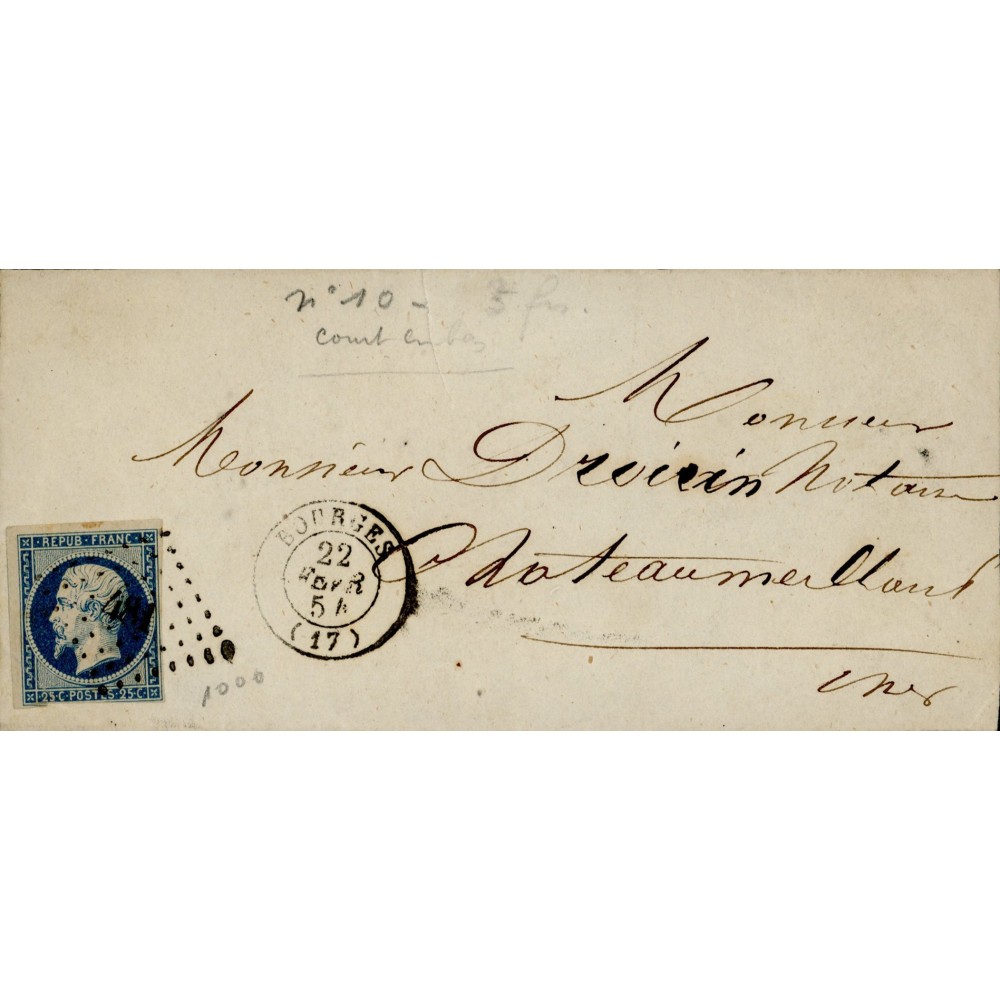 n° 10 - 5 frs.
court en bas
Monsieur
Monsieur Drouin Notaire
Chateaumeillant
Cher
REPUB·FRANC·
481
25·C·POSTES·25·C·
BOURGES
22
FEVR
54
(17)
1000